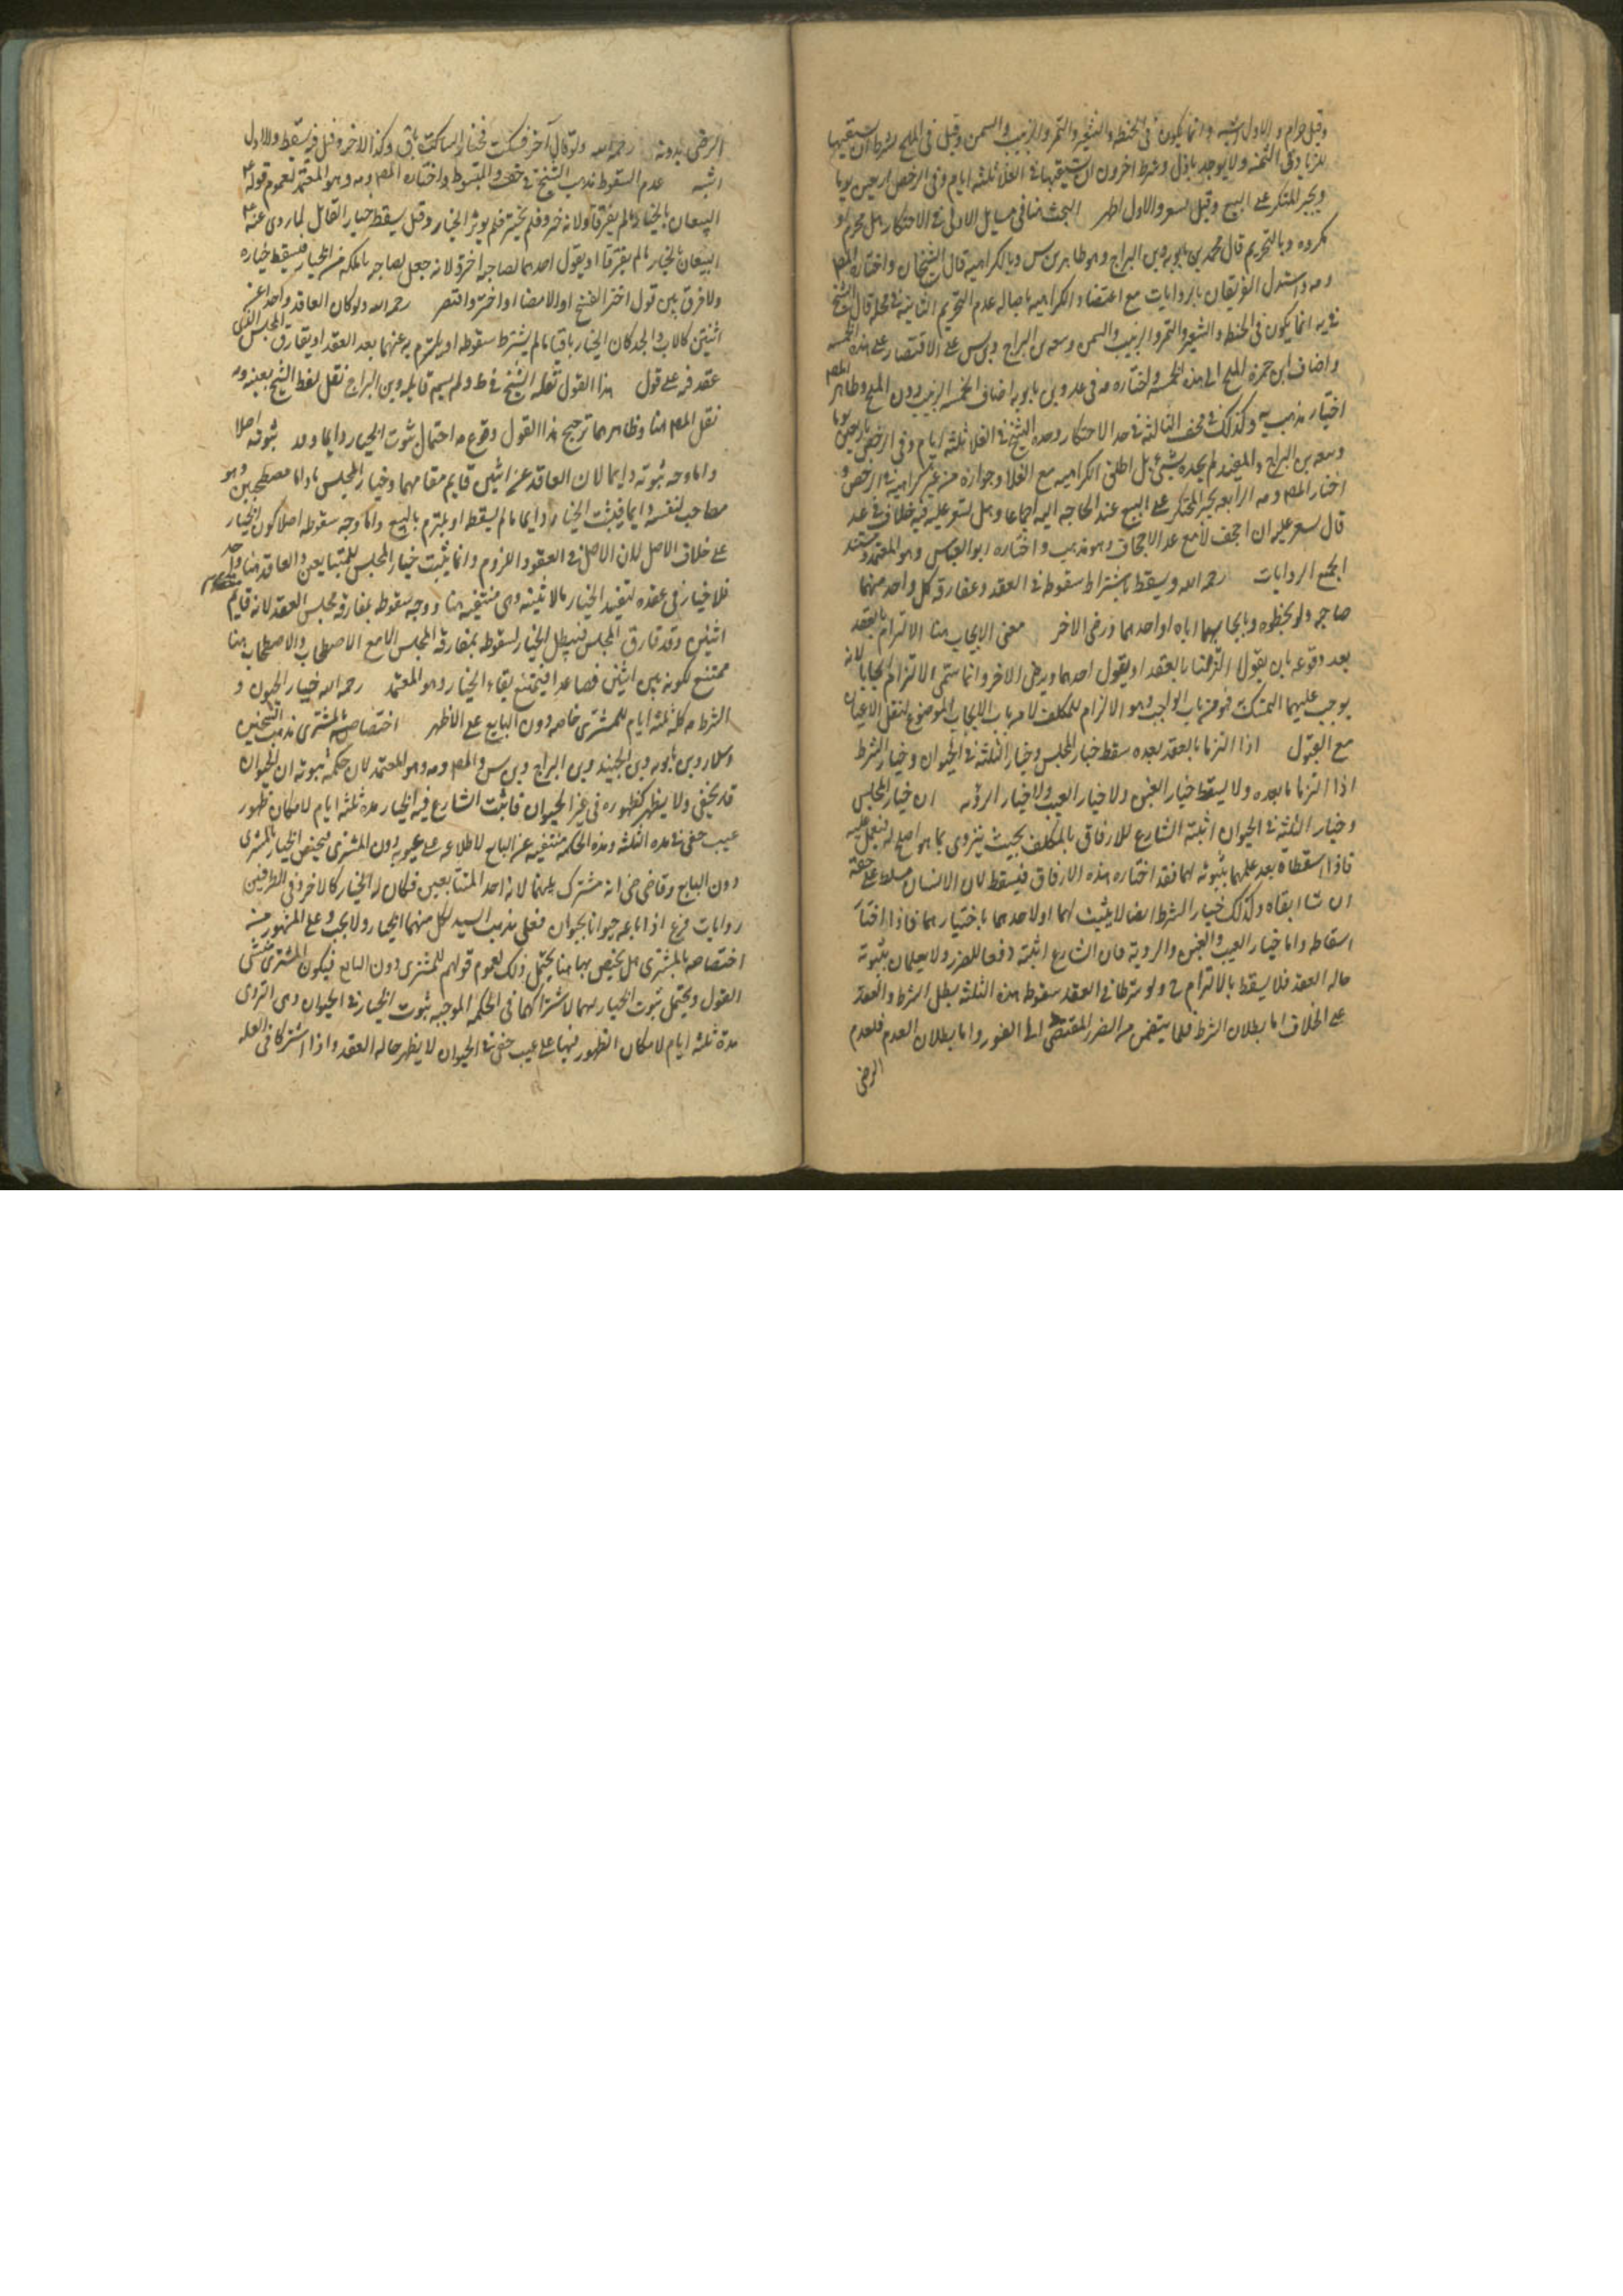 وقيل حرام والاول اشبه وانما يكون فى الحنطه والشعير والتمر والزبيب والسمن وقيل فى الملح بشرط ان يستبقيها
للزيادة فى الثمن ولا يوجد باذل وشرط اخرون ان يستبقيها فى الغلا ثلثه ايام وفى الرخص اربعين يوما
ويجبر المحتكر على البيع وقيل يسعر والاول اظهر البحث هنا فى مسايل الاولى فى الاحتكار هل محرم او
مكروه وبالتحريم قال محمد بن بابويه وبن البراج وهو ظاهر بن س وبالكراهيه قال الشيخان واختاره المص
واستدل الفريقان بالروايات مع اعتضاد الكراهيه باصاله عدم التحريم الثانيه فى محله قال الشيخ
فى يه انما يكون فى الحنطه والشعير والتمر والزبيب والسمن وتبعه بن البراج وبن س على الاقتصار على هذه الخمسه
واضاف ابن حمزه الملح الى هذه الخمسه واختاره فى عد وبن بابويه اضاف الخمسه الزيت دون الملح وظاهر المص
اختيار مذهب يه وكذلك فى الثالثه فى حد الاحتكار وحده الشيخ فى الغلا ثلثه ايام وفى الرخص باربعين يوما
وتبعه بن البراج والمفيد لم يحده بشئ بل اطلق الكراهيه مع الغلا وجوازه من غير كراهيه فى الرخص و
اختار المص الرابعه يجبر المحتكر على البيع عند الحاجه اليه اجماعا وهل يسعر عليه فيه خلاف فى عد
قال يسعر عليه ان اجحف لا مع عدم الاجحاف وهو مذهب واختاره ابو العباس وهو المعتمد ومستند
الجميع الروايات رحمه الله ويسقط باشتراط سقوطه فى العقد ومفارقه كل واحد منهما
صاحبه ولو بخطوه وبايجابهما اياه او احدهما ورضى الاخر معنى الايجاب هنا الالتزام بالعقد
بعد وقوعه بان يقولا التزمنا بالعقد او يقول احدهما ويرضى الاخر وانما سمى الالتزام ايجابا لانه
يوجب عليهما التمسك فهو من باب الواجب وهو الالزام للمكلف لا من باب الايجاب الموضوع لنقل الاعيان
مع القبول اذا التزما بالعقد بعده سقط خيار المجلس وخيار الثلثه فى الحيوان وخيار الشرط
اذا التزما بالعقد ولا يسقط خيار الغبن ولا خيار العيب ولا خيار الرؤيه ان خيار المجلس
وخيار الثلثه فى الحيوان اثبته الشارع للارفاق بالمكلف بحيث يتروى بما هو اصلح له فيعمل عليه
فاذا اسقطاه بعد علمهما بثبوته لهما فقد اختاره هذه الارفاق فيسقط لان الانسان مسلط على حقه
ان شا ابقاه وكذلك خيار الشرط ايضا لا يثبت لهما او لاحدهما باختيارهما فاذا اختار
اسقاطه واما خيار العيب والغبن والرويه فان الشارع اثبته دفعا للضرر ولا يعلمان بثبوته
حاله العقد فلا يسقط بالالتزام ولو شرطا فى العقد سقوط هذه الثلثه بطل الشرط والعقد
على الخلاف اما بطلان الشرط فلما يتضمن من الضرر المقتضى الى الغرور واما بطلان العدم فلعدم
الرضى
الرضى بدونه رحمه الله ولو قال آخر فسكت فخيار الساكت باق وكذا الاخر وقيل فيه يسقط والاول
اشبه عدم السقوط مذهب الشيخ فى خلف والمبسوط واختاره المص وهو المعتمد لعموم قوله ع
البيعان بالخيار مالم يفترقا ولانه خيره فلم يختر فلم يوثر الخيار وقيل يسقط خيار القائل لما روى عنه ع
البيعان بالخيار مالم يفترقا او يقول احدهما لصاحبه اختر ولانه جعل لصاحبه ما ملكه من الخيار فيسقط خياره
ولا فرق بين قول اختر الفسخ او الامضا او اختر واقتصر رحمه الله ولو كان العاقد واحدا عن
اثنين كالاب والجد كان الخيار باقيا مالم يشترط سقوطه او يلتزم به عنهما بعد العقد او يفارق المجلس الذى
عقد فيه على قول هذا القول نقله الشيخ فى ط ولم يسم قايله وبن البراج نقل لفظ الشيخ بعينه
نقل المص هنا وظاهرهما ترجيح هذا القول وقوع احتمال ثبوت الخيار دايما وعدم ثبوته اصلا
واما وجه ثبوته دايما لان العاقد عن اثنين قايم مقامهما وخيار المجلس ما داما مصطحبين وهو
مصاحب لنفسه دايما فيثبت الخيار دايما مالم يسقط او يلتزم بالبيع واما وجه سقوطه اصلا كون الخيار
على خلاف الاصل لان الاصل فى العقود اللزوم وانما يثبت خيار المجلس للمتبايعين والعاقد هنا واحد
فلا خيار فى عقده لتقييد الخيار بالاثنينيه وهى منتفيه هنا ووجه سقوطه بمفارقه مجلس العقد لانه قايم
اثنين وقد فارق المجلس فيبطل الخيار لسقوطه بمفارقه المجلس الا مع الاصطحاب والاصطحاب هنا
ممتنع لكونه بين اثنين فصاعدا فيمتنع بقاء الخيار وهو المعتمد رحمه الله خيار الحيوان و
الشرط كله ثلثه ايام للمشترى خاصه دون البايع على الاظهر اختصاصه بالمشترى مذهب الشيخين
وسلار وبن بابويه وبن الجنيد وبن البراج وبن س والمص وهو المعتمد لان حكمة ثبوته ان الحيوان
قد يخفى ولا يظهر كظهوره فى غير الحيوان فاثبت الشارع فيه الخيار مده ثلثه ايام لامكان ظهور
عيب خفى فى هذه الثلثه وهذه الحكمه منتفيه عن البايع لاطلاعه على عيوبه دون المشترى فيختص الخيار بالمشترى
دون البايع وقاضى انه مشترك بينهما لانه احد المتبايعين فكان له الخيار كالاخر وفى الطرفين
روايات فرع اذا باعه حيوانا بحيوان فعلى مذهب السيد لكل منهما الخيار ولا بحث وعلى المشهور من
اختصاصه بالمشترى هل يختص بها هنا يحتمل ذلك لعموم قولهم للمشترى دون البايع فيكون المشترى
القول ويحتمل ثبوت الخيار لهما لاشتراكهما فى الحكمه الموجبه ثبوت الخيار فى الحيوان وهى التروى
مدة ثلثه ايام لامكان الظهور فيها على عيب خفى فى الحيوان لا يظهر حاله العقد واذا اشتركا فى العله